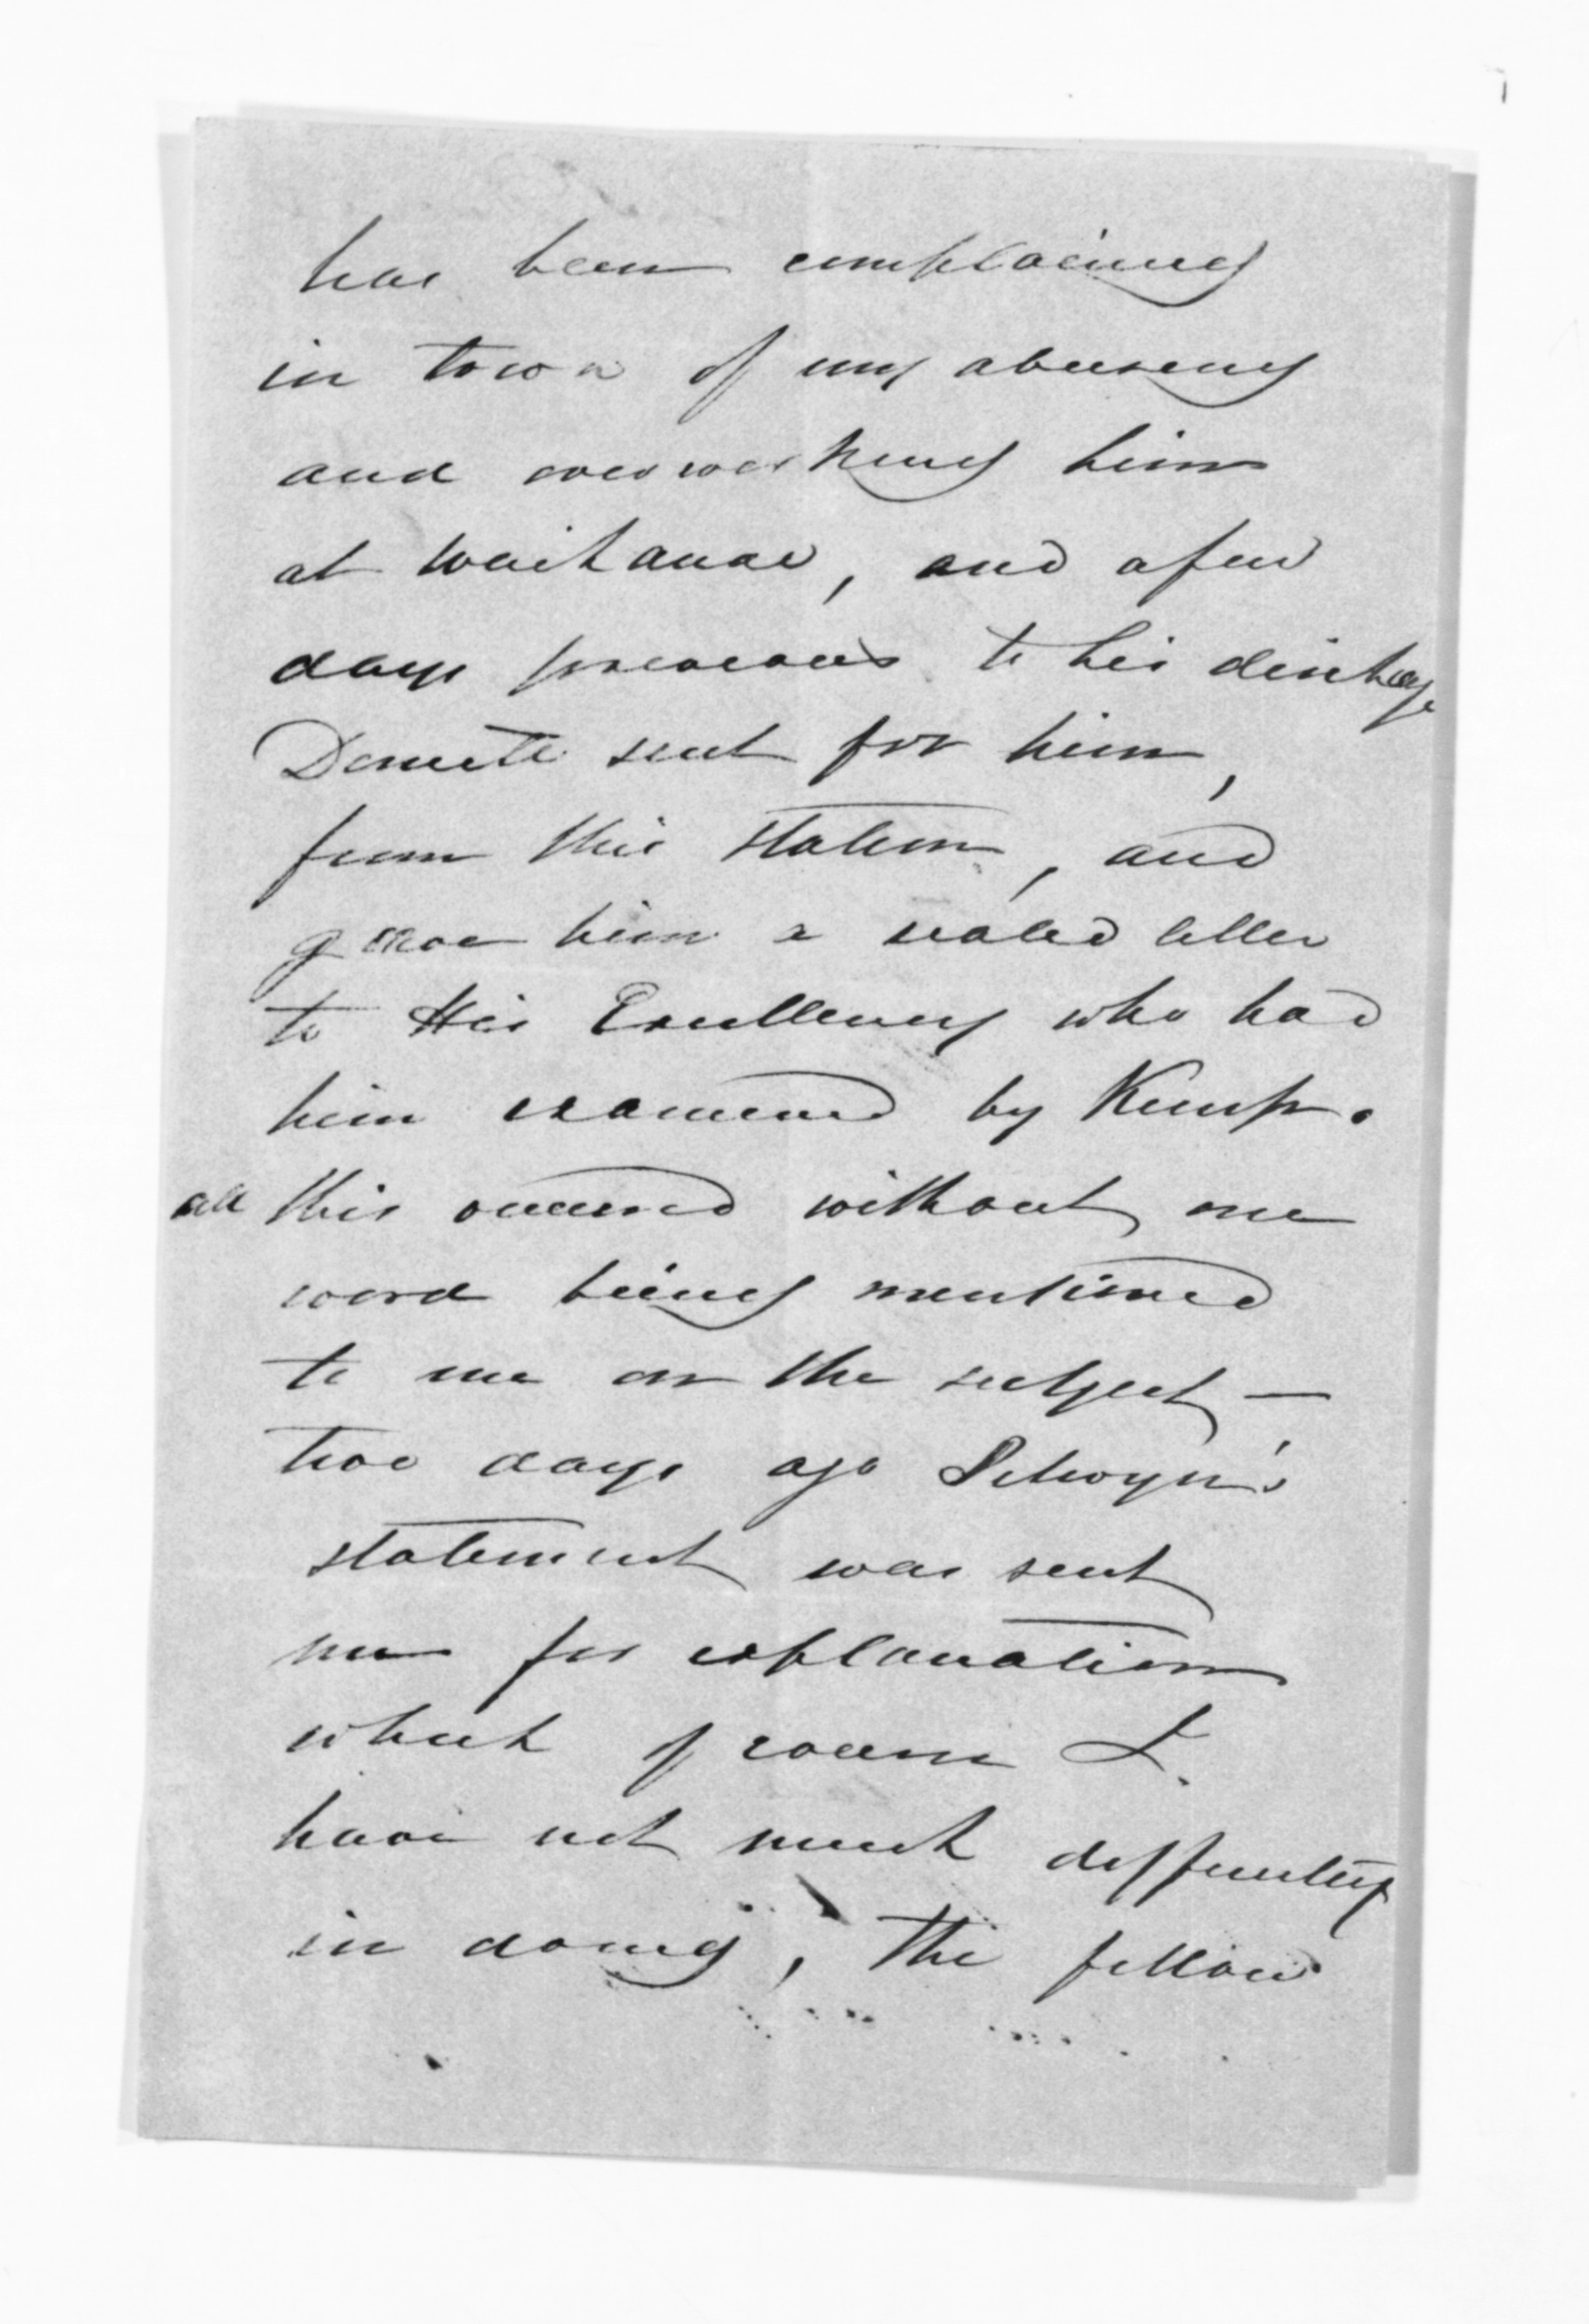 has been complaining
in town of my abusing
and overworking him
at Waikanae, and a few
days previous to his discharge
Durie sent for him,
from this station, and
gave him a sealed letter
to His Excellency who had
him examined by Kemp.
all this occurred without one
word being mentioned
to me on the subject —
two days ago Selwyn's
statement was sent
me for explanation
which of course I
have not much difficulty
in doing, the fellow